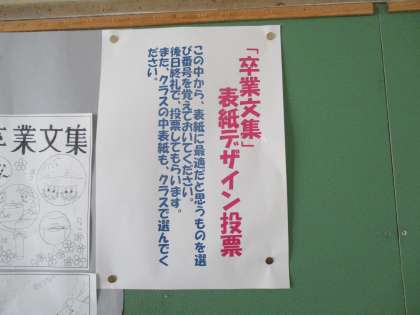 「卒業文集」
表紙デザイン投票
この中から、表紙に最適だと思うものを選
び番号を覚えておいてください。
後日終礼で、投票してもらいます。
また、クラスの中表紙も、クラスで選んでく
ださい。
卒業文集